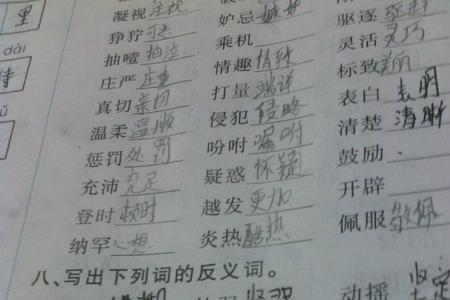 里 凝视 注视 妒忌 嫉妒 驱逐 驱赶
狰狞 可恶 乘机 灵活 灵巧
dài 抽噎 抽泣 情趣 标致 美丽
待 庄严 庄重 打量 端详 表白 表明
真切 亲切 侵犯 侵略 清楚 清晰
温柔 温顺 吩咐 嘱咐 鼓励
惩罚 处罚 疑惑 怀疑 开辟
充沛 充足 越发 更加 佩服 敬佩
登时 顿时 炎热 酷热
纳罕
八、写出下列词的反义词。
动摇 坚定
坚强